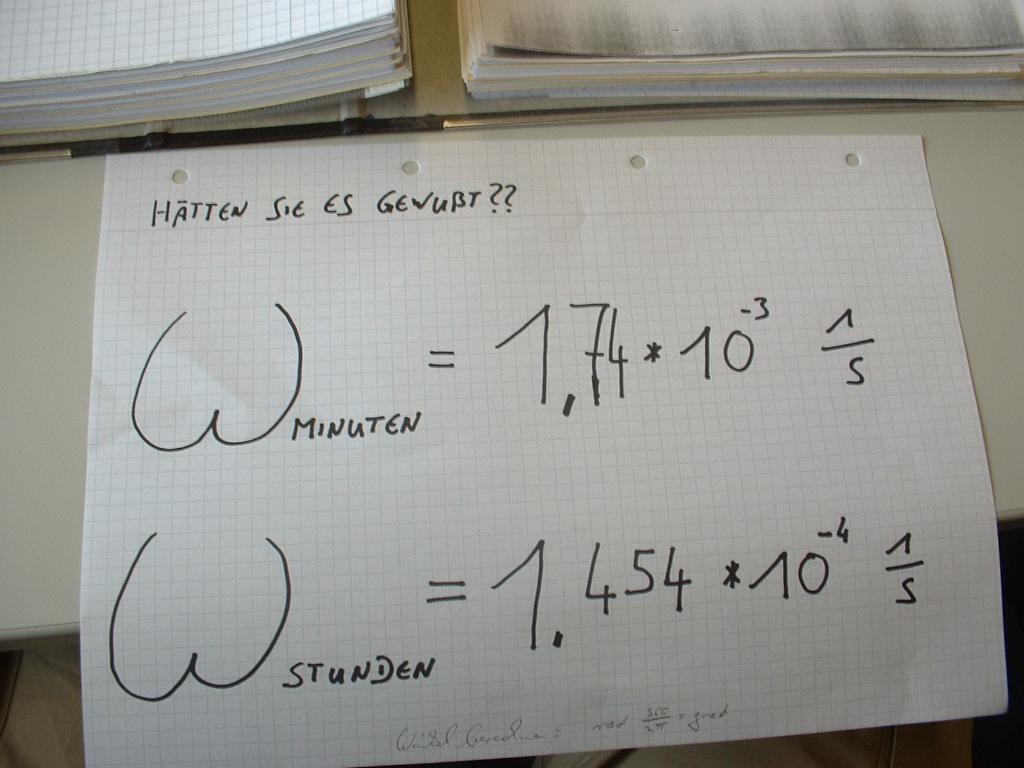 HÄTTEN SIE ES GEWUßT??
ω MINUTEN = 1,74 * 10^-3 1/s
ω STUNDEN = 1.454 * 10^-4 1/s
Winkel berechnen: rad 360/2π = grad